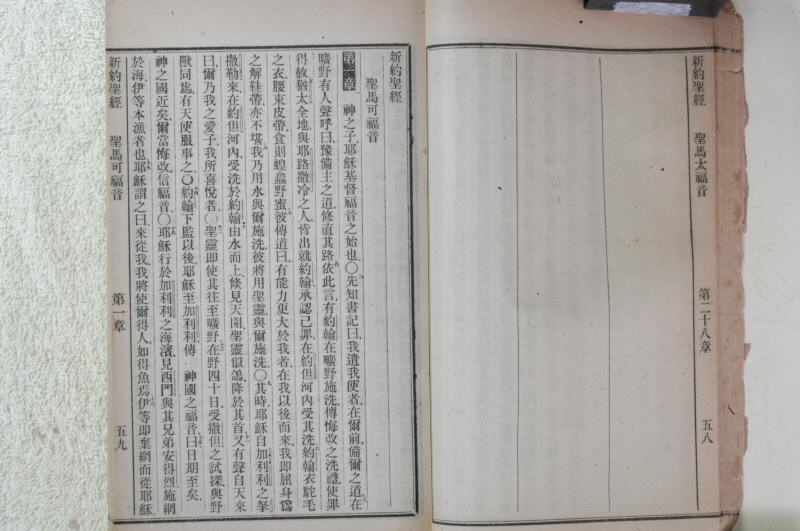 新約聖經　聖馬太福音　第二十八章　五八
新約聖經
聖馬可福音
第一章　神之子耶穌基督福音之始也〇先知書記曰我遣我使者在爾前備爾之道在
曠野有人聲呼曰豫備主之道修直其路依此言有約翰在曠野施洗傳悔改之洗禮使罪
得赦猶太全地與耶路撒冷之人皆出就約翰承認己罪在約但河內受其洗約翰衣駝毛
之衣腰束皮帶食則蝗蟲野蜜彼傳道曰有能力更大於我者在我以後而來我即屈身爲
之解鞋帶亦不堪我乃用水與爾施洗彼將用聖靈與爾施洗〇其時耶穌自加利利之拿
撒勒來在約但河內受洗於約翰由水而上倐見天開聖靈似鴿降於其首又有聲自天來
曰爾乃我之愛子我所喜悅者〇聖靈即使其往至曠野在野四十日受撒但之試探與野
獸同處有天使服事之〇約翰下監以後耶穌至加利利傳　神國之福音曰日期至矣
神之國近矣爾當悔改信福音〇耶穌行於加利利之海濱見西門與其兄弟安得烈施網
於海伊等本漁者也耶穌謂之曰來從我我將使爾得人如得魚焉伊等即棄網而從耶穌
新約聖經　聖馬可福音　第一章　五九